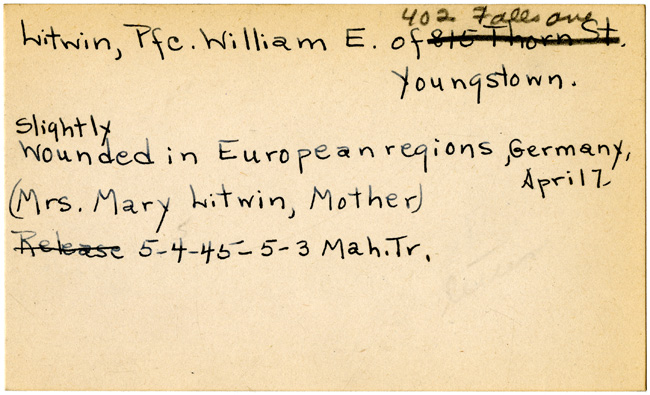 402 Falls ave
Litwin, Pfc. William E. of 815 Thorn St.
Youngstown.
Slightly
Wounded in European regions, Germany,
April 7
(Mrs. Mary Litwin, Mother)
Release 5-4-45-5-3 Mah. Tr.